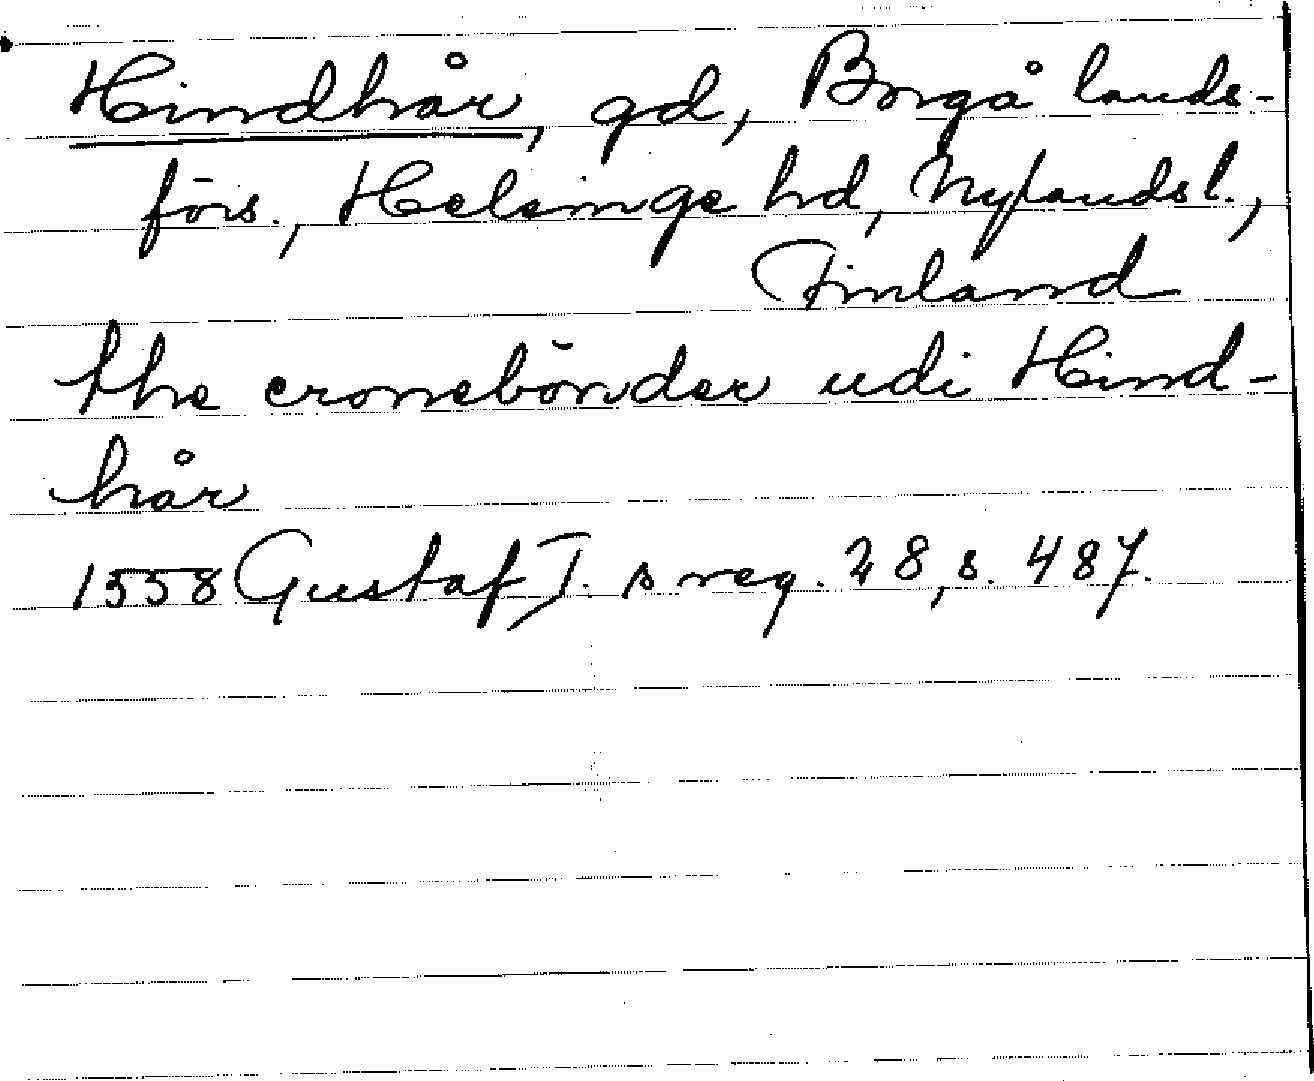 Hindhår, gd, Borgå lands-
förs., Helsinge hd, Nylandsl.,
Finland
the cronebönder udi Hind-
hår
1558 Gustaf I. s reg. 28, s. 487.